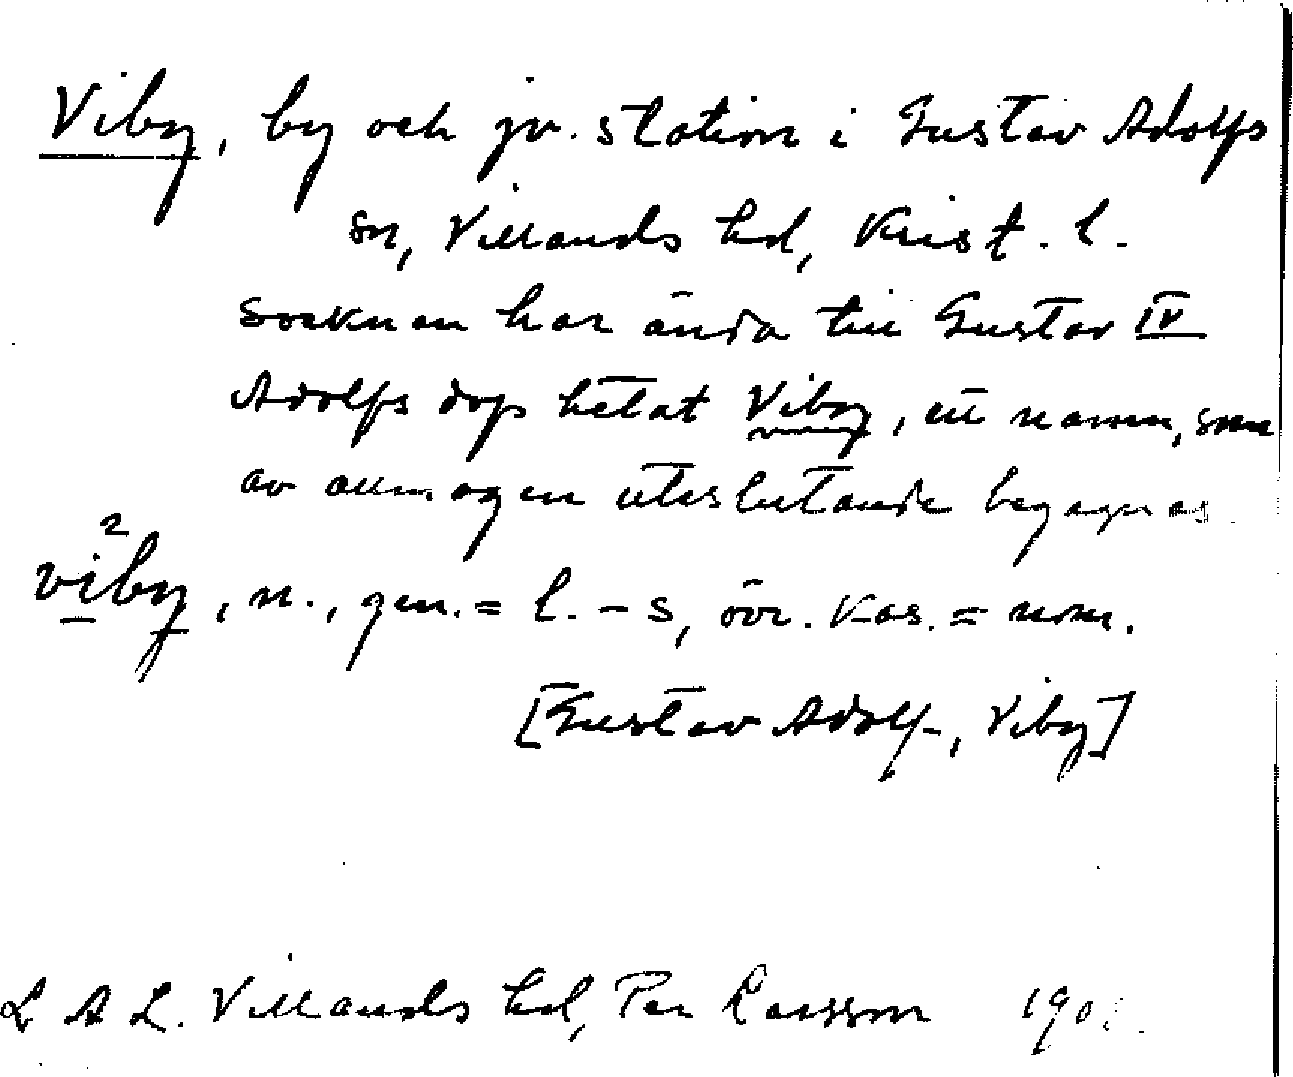 Viby, by och jv. station i Gustav Adolfs
sn, Villands hd, Krist. l.
Socknen har ända till Gustav IV
Adolfs dop hetat Viby, ett namn, som
av allmogen uteslutande begagnas
²viby, n., gen. = l. -s, övr. kas. = nom.
[Gustav Adolf, Viby]
L A L. Villands hd, Per Larsson